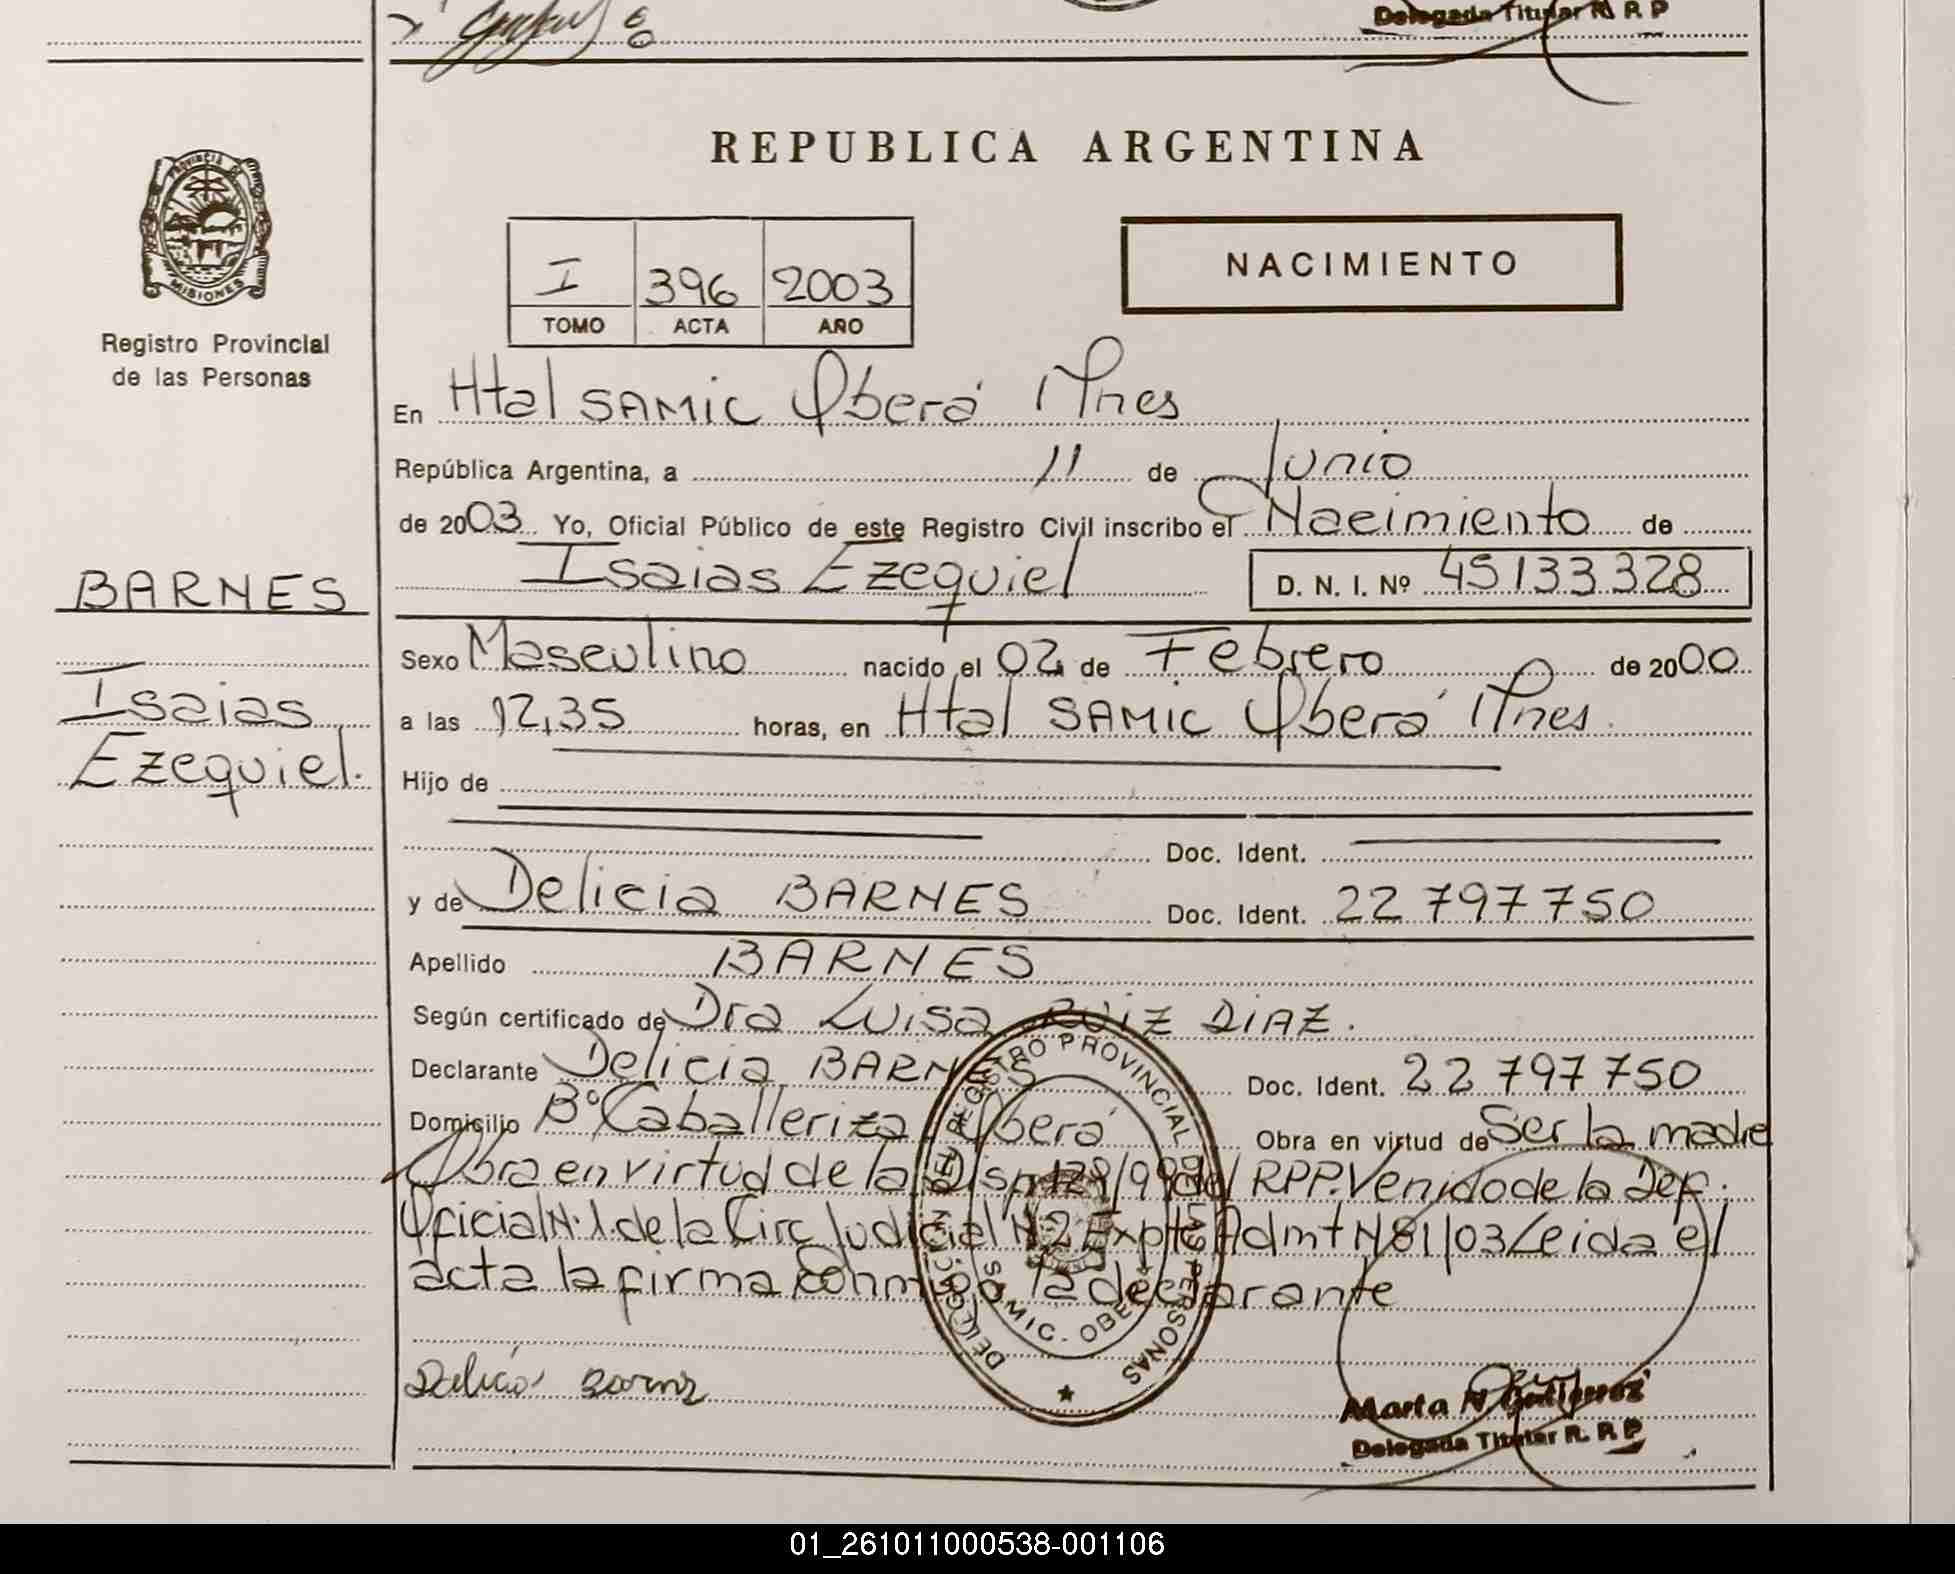 Delegada Titular R. R. P
REPUBLICA ARGENTINA
PROVINCIA DE MISIONES
Registro Provincial
de las Personas
I 396 2003
TOMO ACTA AÑO
NACIMIENTO
En Htal SAMIC Oberá Mnes
República Argentina, a 11 de Junio
de 2003 Yo, Oficial Público de este Registro Civil inscribo el Nacimiento de
Isaias Ezequiel D. N. I. Nº 45133328
BARNES
Isaias
Ezequiel.
Sexo Masculino nacido el 02 de Febrero de 2000
a las 12,35 horas, en Htal SAMIC Oberá Mnes.
Hijo de
Doc. Ident.
y de Delicia BARNES Doc. Ident. 22 797 750
Apellido BARNES
Según certificado de Dra Luisa RUIZ DIAZ.
Declarante Delicia BARNES Doc. Ident. 22 797 750
Domicilio Bº Caballeriza Oberá Obra en virtud de Ser la madre
Obra en virtud de la Disp 128/99 del RPP. Venido de la Def.
Oficial N.1. de la Circ Judicial N 2 Expte Admt N 81/03 Leida el
acta la firma conmigo la declarante
DELEGACION DEL REGISTRO PROVINCIAL DE LAS PERSONAS
SAMIC. OBERA
Delicia Barnz
Marta N Gutierrez
Delegada Titular R. R. P
01_261011000538-001106